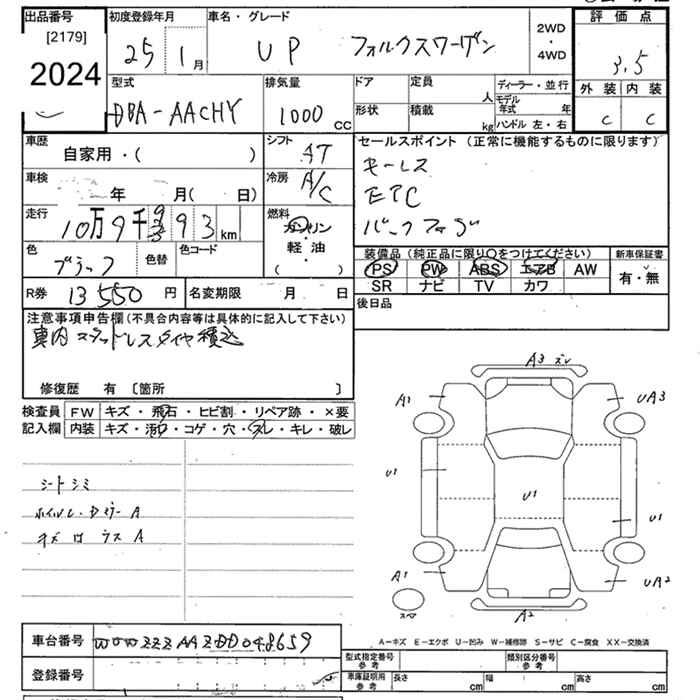 出品番号 初度登録年月 車名・グレード 評価点
[2179] 25 1月 UP フォルクスワーゲン 2WD・4WD 3.5
2024
型式 排気量 ドア 定員 人 ディーラー・並行 外装 内装
DBA-AACHY 1000 CC 形状 積載 kg モデル年式 年 ハンドル 左・右 C C
車歴 自家用・( ) シフト AT セールスポイント (正常に機能するものに限ります)
車検 年 月( 日) 冷房 A/C キーレス
ETC
走行 10万9千 93 km 燃料 ガソリン・軽油・( )
色 ブラック 色替 色コード 装備品 (純正品に限り○をつけてください) 新車保証書
PS PW ABS エアB AW 有・無
SR ナビ TV カワ
R券 13550円 名変期限 月 日 後日品
注意事項申告欄(不具合内容等は具体的に記入して下さい)
車内 スタッドレスタイヤ積込
修復歴 有 [箇所 ]
検査員 FW キズ・飛石・ヒビ割・リペア跡・×要
記入欄 内装 キズ・汚れ・コゲ・穴・スレ・キレ・破レ
シートシミ
A3 スレ
A1 UA3
U1 U1 U1
A1 UA2
スペア A2
A-キズ E-エクボ U-凹み W-補修跡 S-サビ C-腐食 XX-交換済
車台番号 WVWZZZAAZDD048659
登録番号
型式指定番号 参考 類別区分番号 参考
車庫証明用 参考 長さ cm 幅 cm 高さ cm